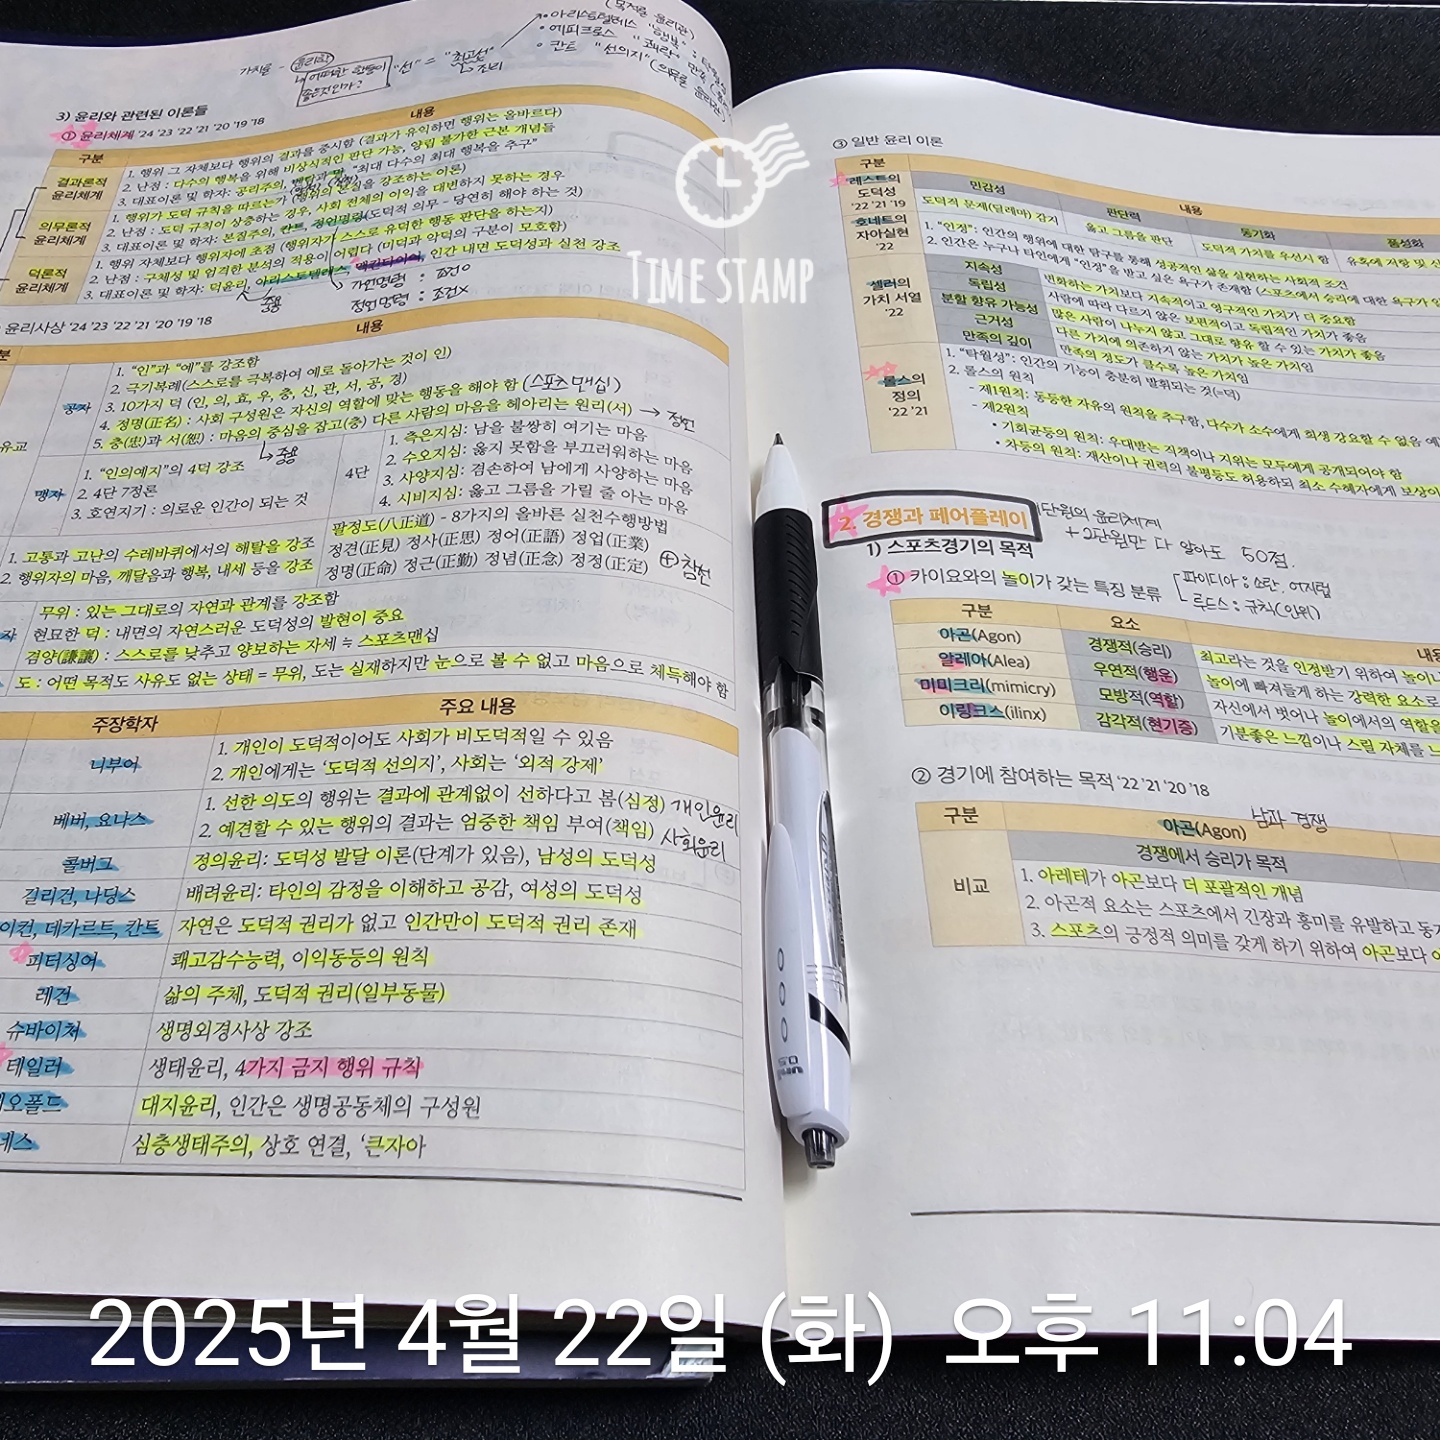 (목적론 윤리관)
• 아리스토텔레스 "행복"
• 에피크로스 "쾌락"
• 칸트 "선의지" (의무론 윤리관)
가치를 - 윤리학 "선" = "최고선"
↳ 진리
3) 윤리와 관련된 이론들
① 윤리체계 '24 '23 '22 '21 '20 '19 '18
구분 내용
결과론적 윤리체계
1. 행위 그 자체보다 행위의 결과를 중시함 (결과가 유익하면 행위는 올바르다)
2. 난점 : 다수의 행복을 위해 비상식적인 판단 가능, 양립 불가한 근본 개념들
3. 대표이론 및 학자: 공리주의, "최대 다수의 최대 행복을 추구"
의무론적 윤리체계
1. 행위가 도덕 규칙을 따르는가 (행위의 본질을 강조하는 이론)
2. 난점 : 도덕 규칙이 상충하는 경우, 사회 전체의 이익을 대변하지 못하는 경우
3. 대표이론 및 학자: 본질주의, 칸트, 정언명령(도덕적 의무 - 당연히 해야 하는 것)
덕론적 윤리체계
1. 행위 자체보다 행위자에 초점 (행위자가 스스로 유덕한 행동 판단을 하는지)
2. 난점 : 구체성 및 엄격한 분석의 적용이 어렵다 (미덕과 악덕의 구분이 모호함)
3. 대표이론 및 학자: 덕윤리, 아리스토텔레스, 맥킨타이어, 인간 내면 도덕성과 실천 강조
중용
가언명령 : 조건○
정언명령 : 조건×
윤리사상 '24 '23 '22 '21 '20 '19 '18
내용
유교
공자
1. "인"과 "예"를 강조함
2. 극기복례(스스로를 극복하여 예로 돌아가는 것이 인)
3. 10가지 덕 (인, 의, 효, 우, 충, 신, 관, 서, 공, 경)
4. 정명(正名) : 사회 구성원은 자신의 역할에 맞는 행동을 해야 함 (스포츠맨십)
5. 충(忠)과 서(恕) : 마음의 중심을 잡고(충) 다른 사람의 마음을 헤아리는 원리(서) → 정언
↳ 중용
맹자
1. "인의예지"의 4덕 강조
2. 4단 7정론
3. 호연지기 : 의로운 인간이 되는 것
4단
1. 측은지심: 남을 불쌍히 여기는 마음
2. 수오지심: 옳지 못함을 부끄러워하는 마음
3. 사양지심: 겸손하여 남에게 사양하는 마음
4. 시비지심: 옳고 그름을 가릴 줄 아는 마음
1. 고통과 고난의 수레바퀴에서의 해탈을 강조
2. 행위자의 마음, 깨달음과 행복, 내세 등을 강조
팔정도(八正道) - 8가지의 올바른 실천수행방법
정견(正見) 정사(正思) 정어(正語) 정업(正業)
정명(正命) 정근(正勤) 정념(正念) 정정(正定) ⊕ 참선
무위 : 있는 그대로의 자연과 관계를 강조함
현묘한 덕 : 내면의 자연스러운 도덕성의 발현이 중요
겸양(謙讓) : 스스로를 낮추고 양보하는 자세 ≒ 스포츠맨십
도 : 어떤 목적도 사유도 없는 상태 = 무위, 도는 실재하지만 눈으로 볼 수 없고 마음으로 체득해야 함
주장학자 주요 내용
니부어
1. 개인이 도덕적이어도 사회가 비도덕적일 수 있음
2. 개인에게는 '도덕적 선의지', 사회는 '외적 강제'
베버, 요나스
1. 선한 의도의 행위는 결과에 관계없이 선하다고 봄(심정) 개인윤리
2. 예견할 수 있는 행위의 결과는 엄중한 책임 부여(책임) 사회윤리
콜버그 정의윤리: 도덕성 발달 이론(단계가 있음), 남성의 도덕성
길리건, 나딩스 배려윤리: 타인의 감정을 이해하고 공감, 여성의 도덕성
이컨, 데카르트, 칸트 자연은 도덕적 권리가 없고 인간만이 도덕적 권리 존재
피터싱어 쾌고감수능력, 이익동등의 원칙
레건 삶의 주체, 도덕적 권리(일부동물)
슈바이처 생명외경사상 강조
테일러 생태윤리, 4가지 금지 행위 규칙
오폴드 대지윤리, 인간은 생명공동체의 구성원
네스 심층생태주의, 상호 연결, '큰자아
TIME STAMP
③ 일반 윤리 이론
구분 내용
레스트의 도덕성 '22 '21 '19
민감성 판단력 동기화 품성화
도덕적 문제(딜레마) 감지 옳고 그름을 판단 도덕적 가치를 우선시 함 유혹에 저항 및 신
호네트의 자아실현 '22
1. "인정": 인간의 행위에 대한 탐구를 통해 성공적인 삶을 실현하는 사회적 조건
2. 인간은 누구나 타인에게 "인정"을 받고 싶은 욕구가 존재함 (스포츠에서 승리에 대한 욕구가 인
셸러의 가치 서열 '22
지속성 변화하는 가치보다 지속적이고 영구적인 가치가 더 중요함
독립성 사람에 따라 다르지 않은 보편적이고 독립적인 가치가 좋음
분할 향유 가능성 많은 사람이 나누지 않고 그대로 향유 할 수 있는 가치가 좋음
근거성 다른 가치에 의존하지 않는 가치가 높은 가치임
만족의 깊이 만족의 정도가 클수록 높은 가치임
롤스의 정의 '22 '21
1. "탁월성": 인간의 기능이 충분히 발휘되는 것(=덕)
2. 롤스의 원칙
- 제1원칙: 동등한 자유의 원칙을 추구함, 다수가 소수에게 희생 강요할 수 없음
- 제2원칙
• 기회균등의 원칙: 우대받는 직책이나 지위는 모두에게 공개되어야 함
• 차등의 원칙: 재산이나 권력의 불평등도 허용하되 최소 수혜자에게 보상이
2. 경쟁과 페어플레이
1단원의 윤리체계
+ 2단원만 다 알아도 50점.
1) 스포츠경기의 목적
① 카이요와의 놀이가 갖는 특징 분류
파이디아 : 소란, 어지럽
루두스 : 규칙(인위)
구분 요소 내용
아곤(Agon) 경쟁적(승리) 최고라는 것을 인정받기 위하여 놀이나
알레아(Alea) 우연적(행운) 놀이에 빠져들게 하는 강력한 요소로
미미크리(mimicry) 모방적(역할) 자신에서 벗어나 놀이에서의 역할을
이링크스(ilinx) 감각적(현기증) 기분좋은 느낌이나 스릴 자체를 느
② 경기에 참여하는 목적 '22 '21 '20 '18
구분 아곤(Agon) 남과 경쟁
경쟁에서 승리가 목적
비교
1. 아레테가 아곤보다 더 포괄적인 개념
2. 아곤적 요소는 스포츠에서 긴장과 흥미를 유발하고 동기
3. 스포츠의 긍정적 의미를 갖게 하기 위하여 아곤보다
2025년 4월 22일 (화) 오후 11:04